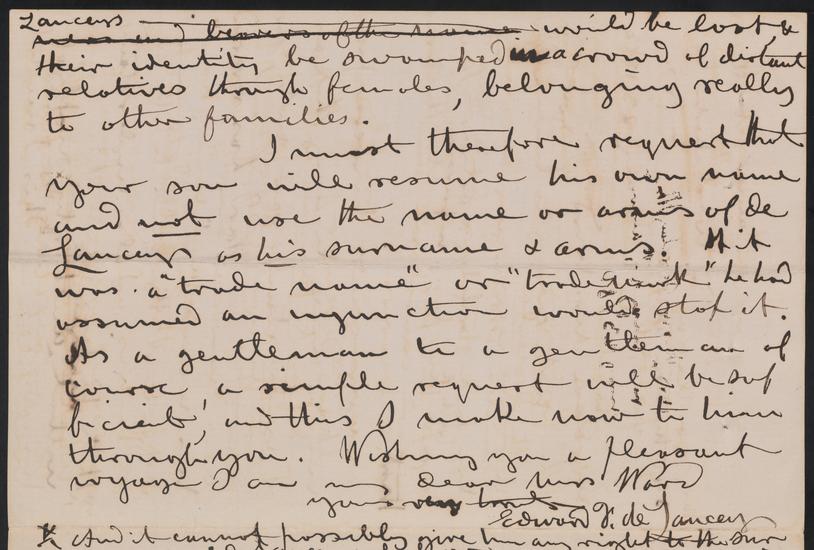 Lanceys ~~men and bearers of the name~~ would be lost, &
their identity be swamped in a crowd of distant
relatives through females, belonging really
to other families.
I must therefore request that
your son will resume his own name
and not use the name or arms of de
Lancey as his surname & arms. If it
was a "trade name" or "trade mark" he had
assumed an injunction would stop it.
As a gentleman to a gentleman of
course, a simple request will be suf
ficient, and this I make now to him
through you. Wishing you a pleasant
voyage I am my dear Mrs Ward
yours very truly
Edward F. de Lancey
And it cannot possibly give him any right to the sur